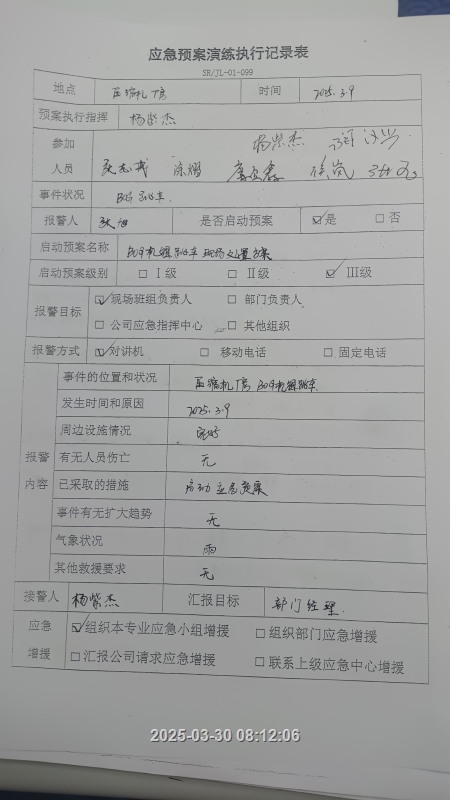 应急预案演练执行记录表
SR/JL-01-099
地点 压缩机厂房 时间 2025.3.9
预案执行指挥 杨紫杰
参加 杨紫杰
人员
事件状况 跳车
报警人 是否启动预案 ☑是 □否
启动预案名称 机组跳车现场处置方案
启动预案级别 □Ⅰ级 □Ⅱ级 ☑Ⅲ级
报警目标 ☑现场班组负责人 □部门负责人
□公司应急指挥中心 □其他组织
报警方式 ☑对讲机 □移动电话 □固定电话
报警内容
事件的位置和状况 压缩机厂房 机组跳车
发生时间和原因 2025.3.9
周边设施情况 完好
有无人员伤亡 无
已采取的措施 启动应急预案
事件有无扩大趋势 无
气象状况 雨
其他救援要求 无
接警人 杨紫杰 汇报目标 部门经理
应急 ☑组织本专业应急小组增援 □组织部门应急增援
增援 □汇报公司请求应急增援 □联系上级应急中心增援
2025-03-30 08:12:06